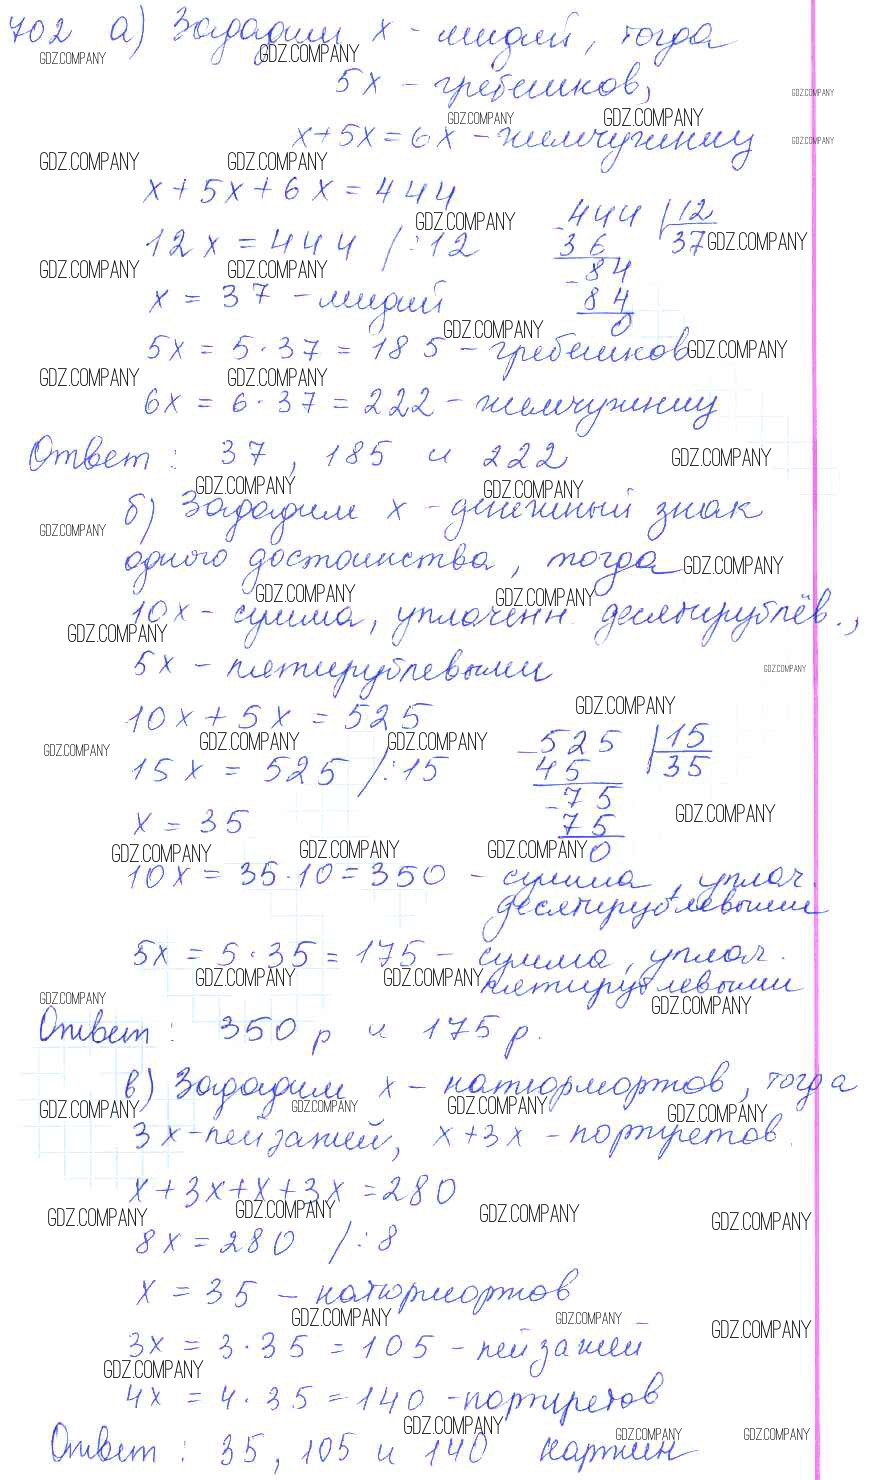 702 а) Зададим х - мидий, тогда
5х - гребешков,
х+5х=6х - жемчужниц
х+5х+6х=444
12х=444 /:12
444 |12
- 36 37
- 84
84
0
х = 37 - мидий
5х = 5·37 = 185 - гребешков
6х = 6·37 = 222 - жемчужниц
Ответ: 37, 185 и 222
б) Зададим х - денежный знак
одного достоинства, тогда
10х - сумма, уплаченн. десятирублёв.,
5х - пятирублевыми
10х + 5х = 525
15х = 525 /:15
525 |15
- 45 35
- 75
75
0
х = 35
10х = 35·10 = 350 - сумма, уплач.
десятирублевыми
5х = 5·35 = 175 - сумма, уплач.
пятирублевыми
Ответ: 350 р и 175 р.
в) Зададим х - натюрмортов, тогда
3х - пейзажей, х+3х - портретов.
х+3х+х+3х = 280
8х = 280 /:8
х = 35 - натюрмортов
3х = 3·35 = 105 - пейзажей
4х = 4·35 = 140 - портретов
Ответ: 35, 105 и 140 картин
GDZ.COMPANY